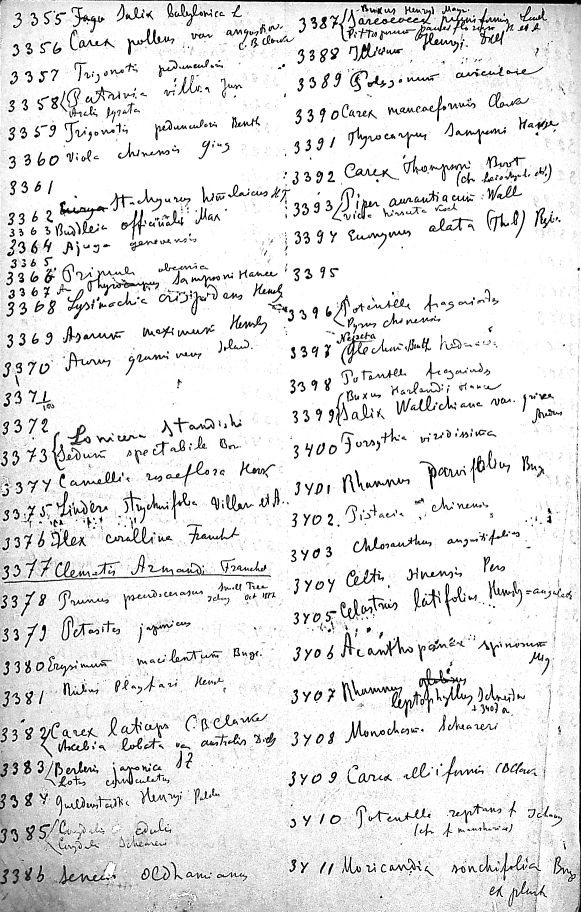 3355 Fago Salix Babylonica L
3356 Carex pallens var angustior
C.B. Clarke
3357 Trigonotis peduncularis
3358 Patrinia villosa Juss
3359 Trigonotis peduncularis Benth
3360 Viola chinensis Ging
3361
3362 Stachyurus himalaicus H.T
3363 Buddleia officinalis Max
3364 Ajuga genevensis
3365
3366 Primula obconica
3367 Thyrocarpus Sampsoni Hance
3368 Lysimachia crispidens Hemsl
3369 Asarum maximum Hemsly
3370 Acorus gramineus Soland.
3371
3372
Lonicera Standishi
3373 Sedum spectabile Bor
3374 Camellia rosaeflora Hook
3375 Lindera strychnifolia Villar et A.
3376 Ilex corallina Franchet
3377 Clematis Armandi Franchet
3378 Prunus pseudocerasus Small Tree
3379 Petasites japonicus
3380 Erysimum macilentum Bunge
3381 Rubus Playfairi Hemsl
3382 Carex laticeps C.B. Clarke
Akebia lobata var australis Diels
3383 Berberis japonica
Lotus corniculatus
3384 Gueldenstaedtia Henryi
3385 Corydalis edulis
Corydalis Sheareri
3386 Senecio Oldhamianus
3387 Buxus Henryi Mayr
Sarcococca pruniformis Lindl
Pittosporum pauciflorum H. et A
3388 Illicium Henryi Diels
3389 Polygonum aviculare
3390 Carex mancaeformis Clarke
3391 Thyrocarpus Sampsoni Hance
3392 Carex Thompsoni Boot
3393 Piper aurantiacum Wall
Viola hirsuta
3394 Euonymus alata (Th.)
3395
3396 Potentilla fragarioides
Pyrus chinensis
Nepeta
3397 Glechoma hederacea
3398 Potentilla fragarioides
Buxus Harlandii Hance
3399 Salix Wallichiana var. grisea
3400 Forsythia viridissima
3401 Rhamnus parvifolius Bge
3402. Pistacia chinensis
3403 Chloranthus angustifolius
3404 Celtis sinensis Pers
3405 Celastrus latifolius Hemsly = angulatus
3406 Acanthopanax spinosum
Miq
3407 Rhamnus
leptophyllus Schneider
+ 3407a
3408 Monochasma Sheareri
3409 Carex alliiformis CBClarke
3410 Potentilla reptans
3411 Moricandia sonchifolia Bge